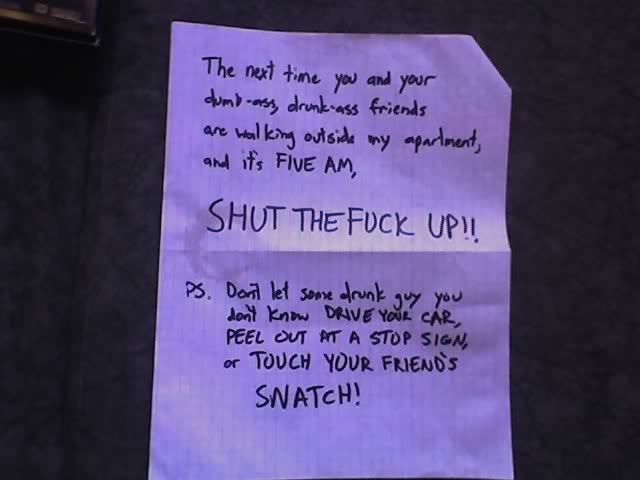 The next time you and your
dumb-ass, drunk-ass friends
are walking outside my apartment,
and it's FIVE AM,
SHUT THE FUCK UP!!
PS. Don't let some drunk guy you
don't know DRIVE YOUR CAR,
PEEL OUT AT A STOP SIGN,
or TOUCH YOUR FRIEND'S
SNATCH!